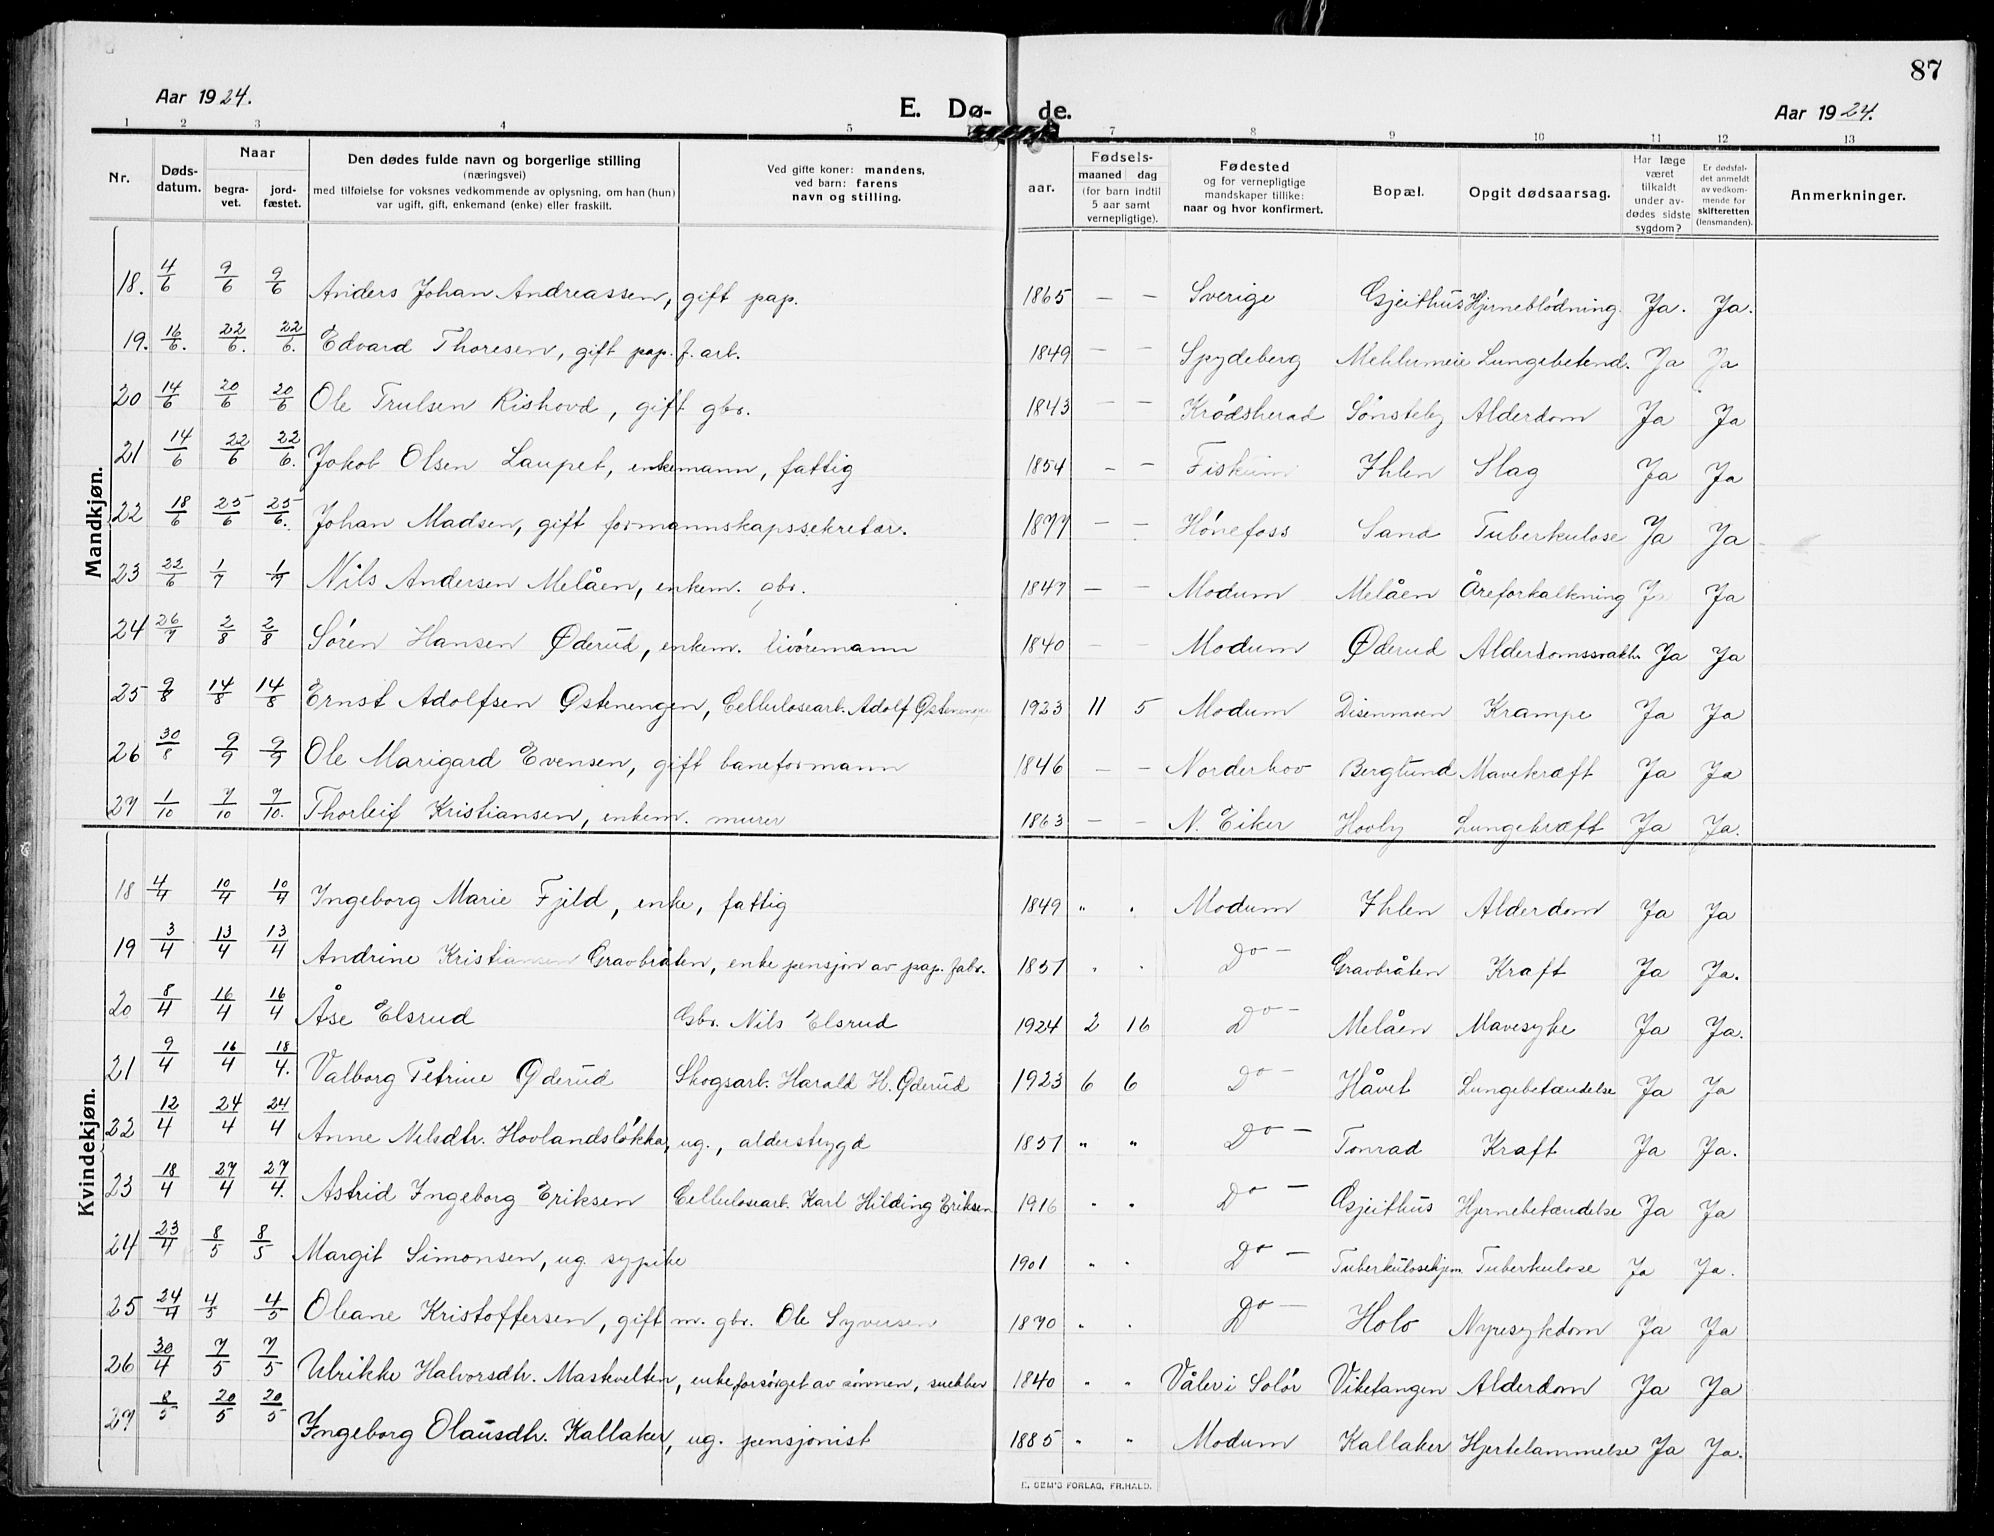 87
Aar 1924. E. Dø- de. Aar 1924.
1 2 3 4 5 7 8 9 10 11 12 13
Nr. Døds-datum. Naar begra-vet. jord-fæstet. Den dødes fulde navn og borgerlige stilling (næringsvei) med tilføielse for voksnes vedkommende av oplysning, om han (hun) var ugift, gift, enkemand (enke) eller fraskilt. Ved gifte koner: mandens, ved barn: farens navn og stilling. aar. Fødsels- maaned dag (for barn indtil 5 aar samt vernepligtige). Fødested og for vernepligtige mandskaper tillike: naar og hvor konfirmert. Bopæl. Opgit dødsaarsag. Har læge været tilkaldt under av-dødes sidste sygdom? Er dødsfal-det anmeldt av vedkom-mende for skifteretten (lensmanden). Anmerkninger.
Mandkjøn.
18. 4/6 9/6 9/6 Anders Johan Andreassen, gift pap. 1865 — — Sverige Gjeithus Hjerneblödning. Ja. Ja.
19. 16/6. 22/6. 22/6. Edvard Thoresen, gift pap. f. arb. 1849 — — Spydeberg Mehlumeie Lungebetend. Ja Ja
20 14/6 20/6 20/6 Ole Trulsen Rishovd, gift gbr. 1843 — — Krödsherad Sönsteby Alderdom Ja Ja
21 14/6 22/6 22/6. Jakob Olsen Laupet, enkemann, fattig 1854 — — Fiskum Ihlen Slag Ja Ja
22 18/6 25/6 25/6. Johan Madsen, gift formannskapssekretær. 1877 — — Hönefoss Sand Tuberkulose Ja Ja
23 22/6 1/7 1/7 Nils Andersen Melåen, enkem. gbr. 1847 — — Modum Melåen Åreforkalkning Ja Ja
24 26/7 2/8 2/8 Sören Hansen Øderud, enkem. livöremann 1840 — — Modum Øderud Alderdomssvakh. Ja Ja
25 9/8 14/8 14/8 Ernst Adolfsen Østenengen, Cellulosearb. Adolf Østenengen 1923 11 5 Modum Disenmoen Krampe Ja Ja
26 30/8 9/9 9/9 Ole Marigard Evensen, gift baneformann 1846 — — Norderhov Berglund Mavekræft Ja Ja
27 1/10 7/10 7/10. Thorleif Kristiansen, enkem. murer 1863 — — N. Eiker Hovby Lungekræft Ja Ja.
Kvindekjøn.
18 4/4 10/4 10/4 Ingeborg Marie Fjeld, enke, fattig 1849 " " Modum Ihlen Alderdom Ja Ja
19 3/4 13/4 13/4 Andrine Kristiansen Gravbråten, enke pensjon av pap. fabr. 1851 " " Do — Gravbråten Kraft Ja Ja.
20 8/4 16/4 16/4 Åse Elsrud Gbr. Nils Elsrud 1924 2 16 Do — Melåen Mavesyke Ja Ja.
21 9/4 16/4 18/4. Valborg Petrine Øderud Skogsarb. Harald H. Øderud 1923 6 6 Do — Håvet Lungebetændelse Ja Ja
22 12/4 24/4 24/4 Anne Nilsdtr. Hovlandslökka, ug., alderstrygd 1851 " " Do — Tonrad Kraft Ja Ja.
23 18/4 27/4 27/4. Astrid Ingeborg Eriksen Cellulosearb. Karl Hilding Eriksen 1916 " " Do — Gjeithus Hjernebetændelse Ja Ja
24 23/4 8/5 8/5 Margit Simonsen, ug. sypike 1901 " " Do — Tuberkulosehjem. Tuberkulose Ja Ja.
25 24/4 4/5 4/5 Oleane Kristoffersen, gift m. gbr. Ole Syversen 1870 " " Do — Holo Nyresykdom Ja Ja
26 30/4 7/5 7/5 Ulrikke Halvorsdtr. Maskvelten, enke, forsörget av sönnen, snekker 1840 " " Våler i Solör Viketangen Alderdom Ja Ja
27 8/5 20/5 20/5 Ingeborg Olausdtr. Kallaker, ug. pensjonist 1885 " " Modum Kallaker Hjertelammelse Ja Ja.
E. SEM'S FORLAG, FR.HALD.